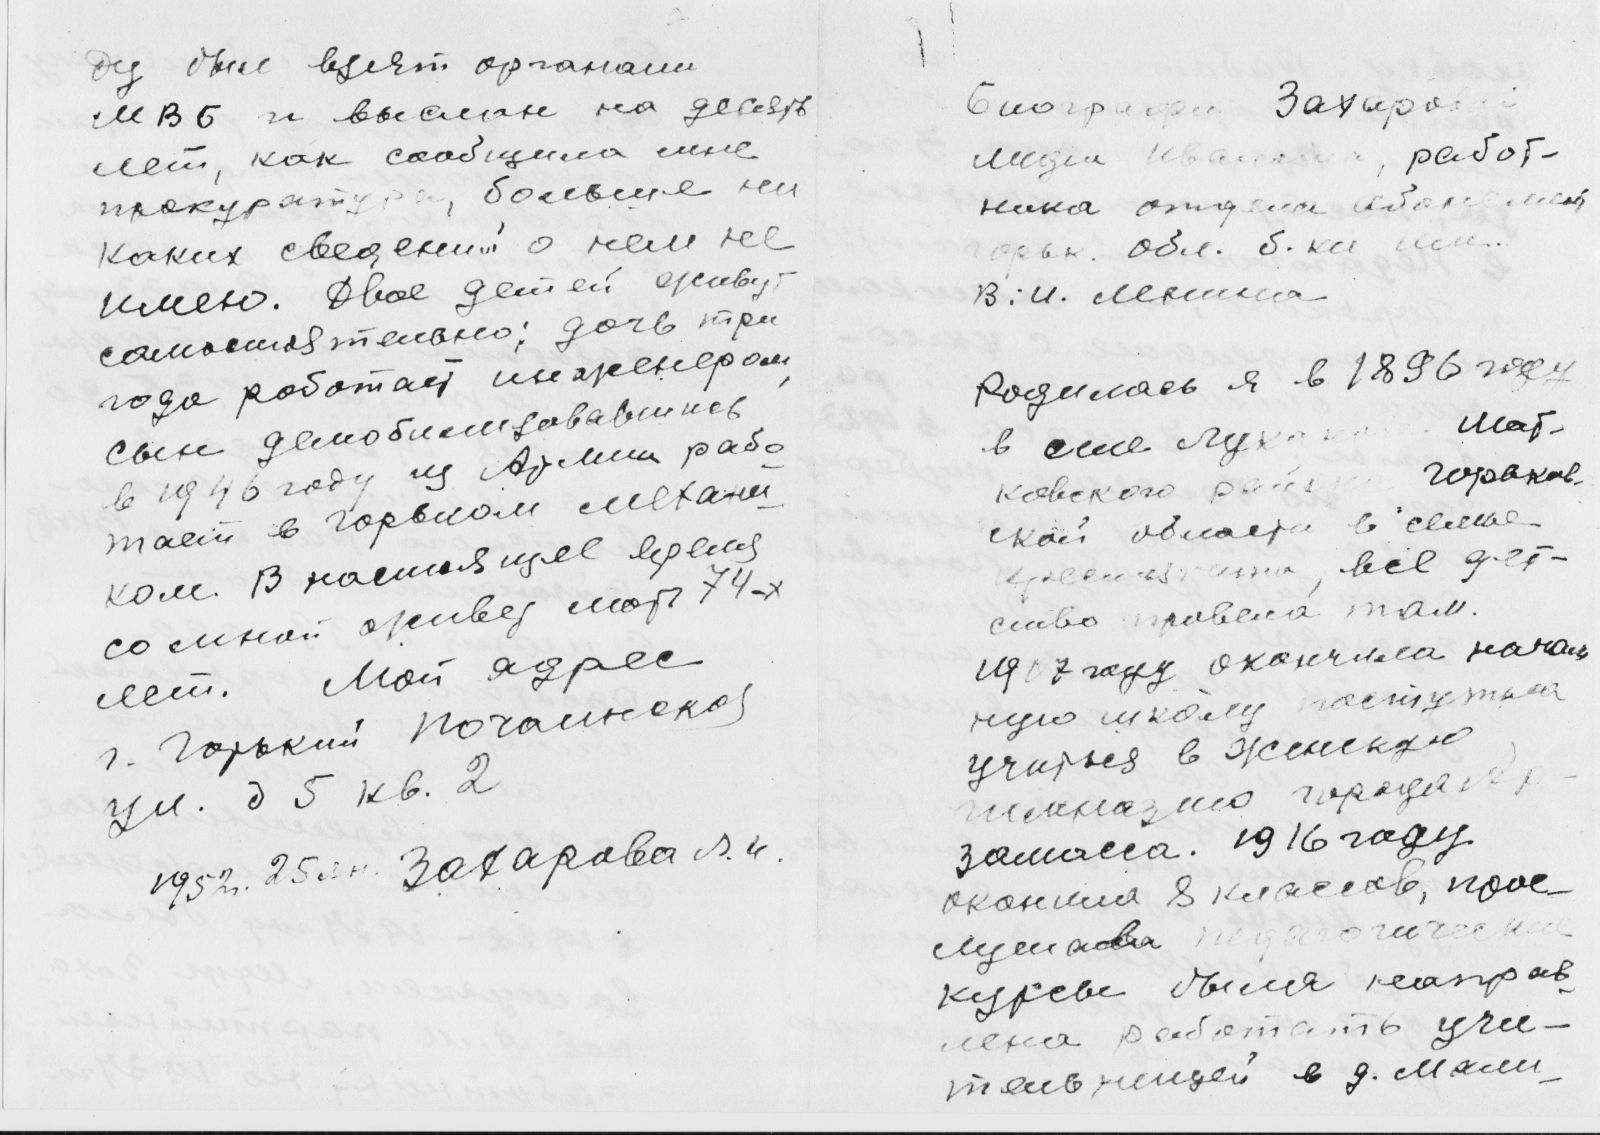 ду был взят органами
МВБ и выслан на десять
лет, как сообщила мне
прокуратура, больше ни
каких сведений о нем не
имею. Двое детей живут
самостоятельно; дочь три
года работает инженером,
сын демобилизовавшись
в 1946 году из Армии рабо
тает в Горьком механи_
ком. В настоящее время
со мной живет мать 74-х
лет. Мой адрес
г. Горький Почаинская
ул. д 5 кв. 2
1952г. 25 ян. Захарова Л.И.
Биография Захаровой
Лидии Ивановны, работ-
ника отдела абонемент
Горьк. обл. б-ки им.
В.И. Ленина
Родилась я в 1896 году
в селе Мат-
ковского района Горьков-
ской области в семье
крестьянина, всё дет-
ство провела там.
1907 году окончила началь
ную школу поступила
учиться в Женскую
гимназию города Ар-
замаса. 1916 году
окончила 8 классов, прос-
лушала педагогические
курсы была направ_
лена работать учи-
тельницей в д. Мали_